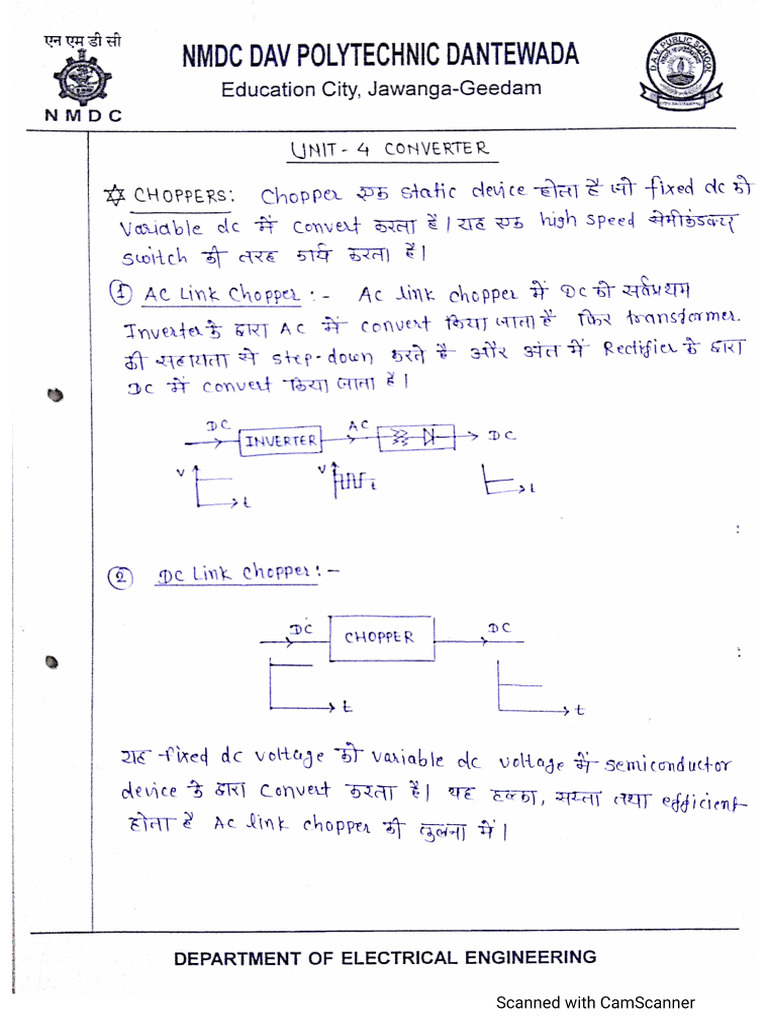 एन एम डी सी
NMDC
NMDC DAV POLYTECHNIC DANTEWADA
Education City, Jawanga-Geedam
D.A.V. PUBLIC SCHOOL
UNIT - 4 CONVERTER
CHOPPERS: Chopper एक static device होता है जो fixed dc को
variable dc में convert करता है। यह एक high speed सेमीकंडक्टर
switch की तरह कार्य करता है।
① AC Link Chopper :- AC link chopper में DC को सर्वप्रथम
Inverter के द्वारा AC में convert किया जाता है फिर transformer
की सहायता से step-down करते है और अंत में Rectifier के द्वारा
DC में convert किया जाता है।
DC INVERTER AC DC
V t V t t
② DC Link Chopper :-
DC CHOPPER DC
t t
यह fixed dc voltage को variable dc voltage में semiconductor
device के द्वारा convert करता है। यह हल्का, सस्ता तथा efficient
होता है AC link chopper की तुलना में।
DEPARTMENT OF ELECTRICAL ENGINEERING
Scanned with CamScanner